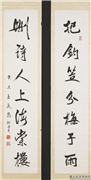 把釣笠分梅子雨
刪詩人上海棠樓